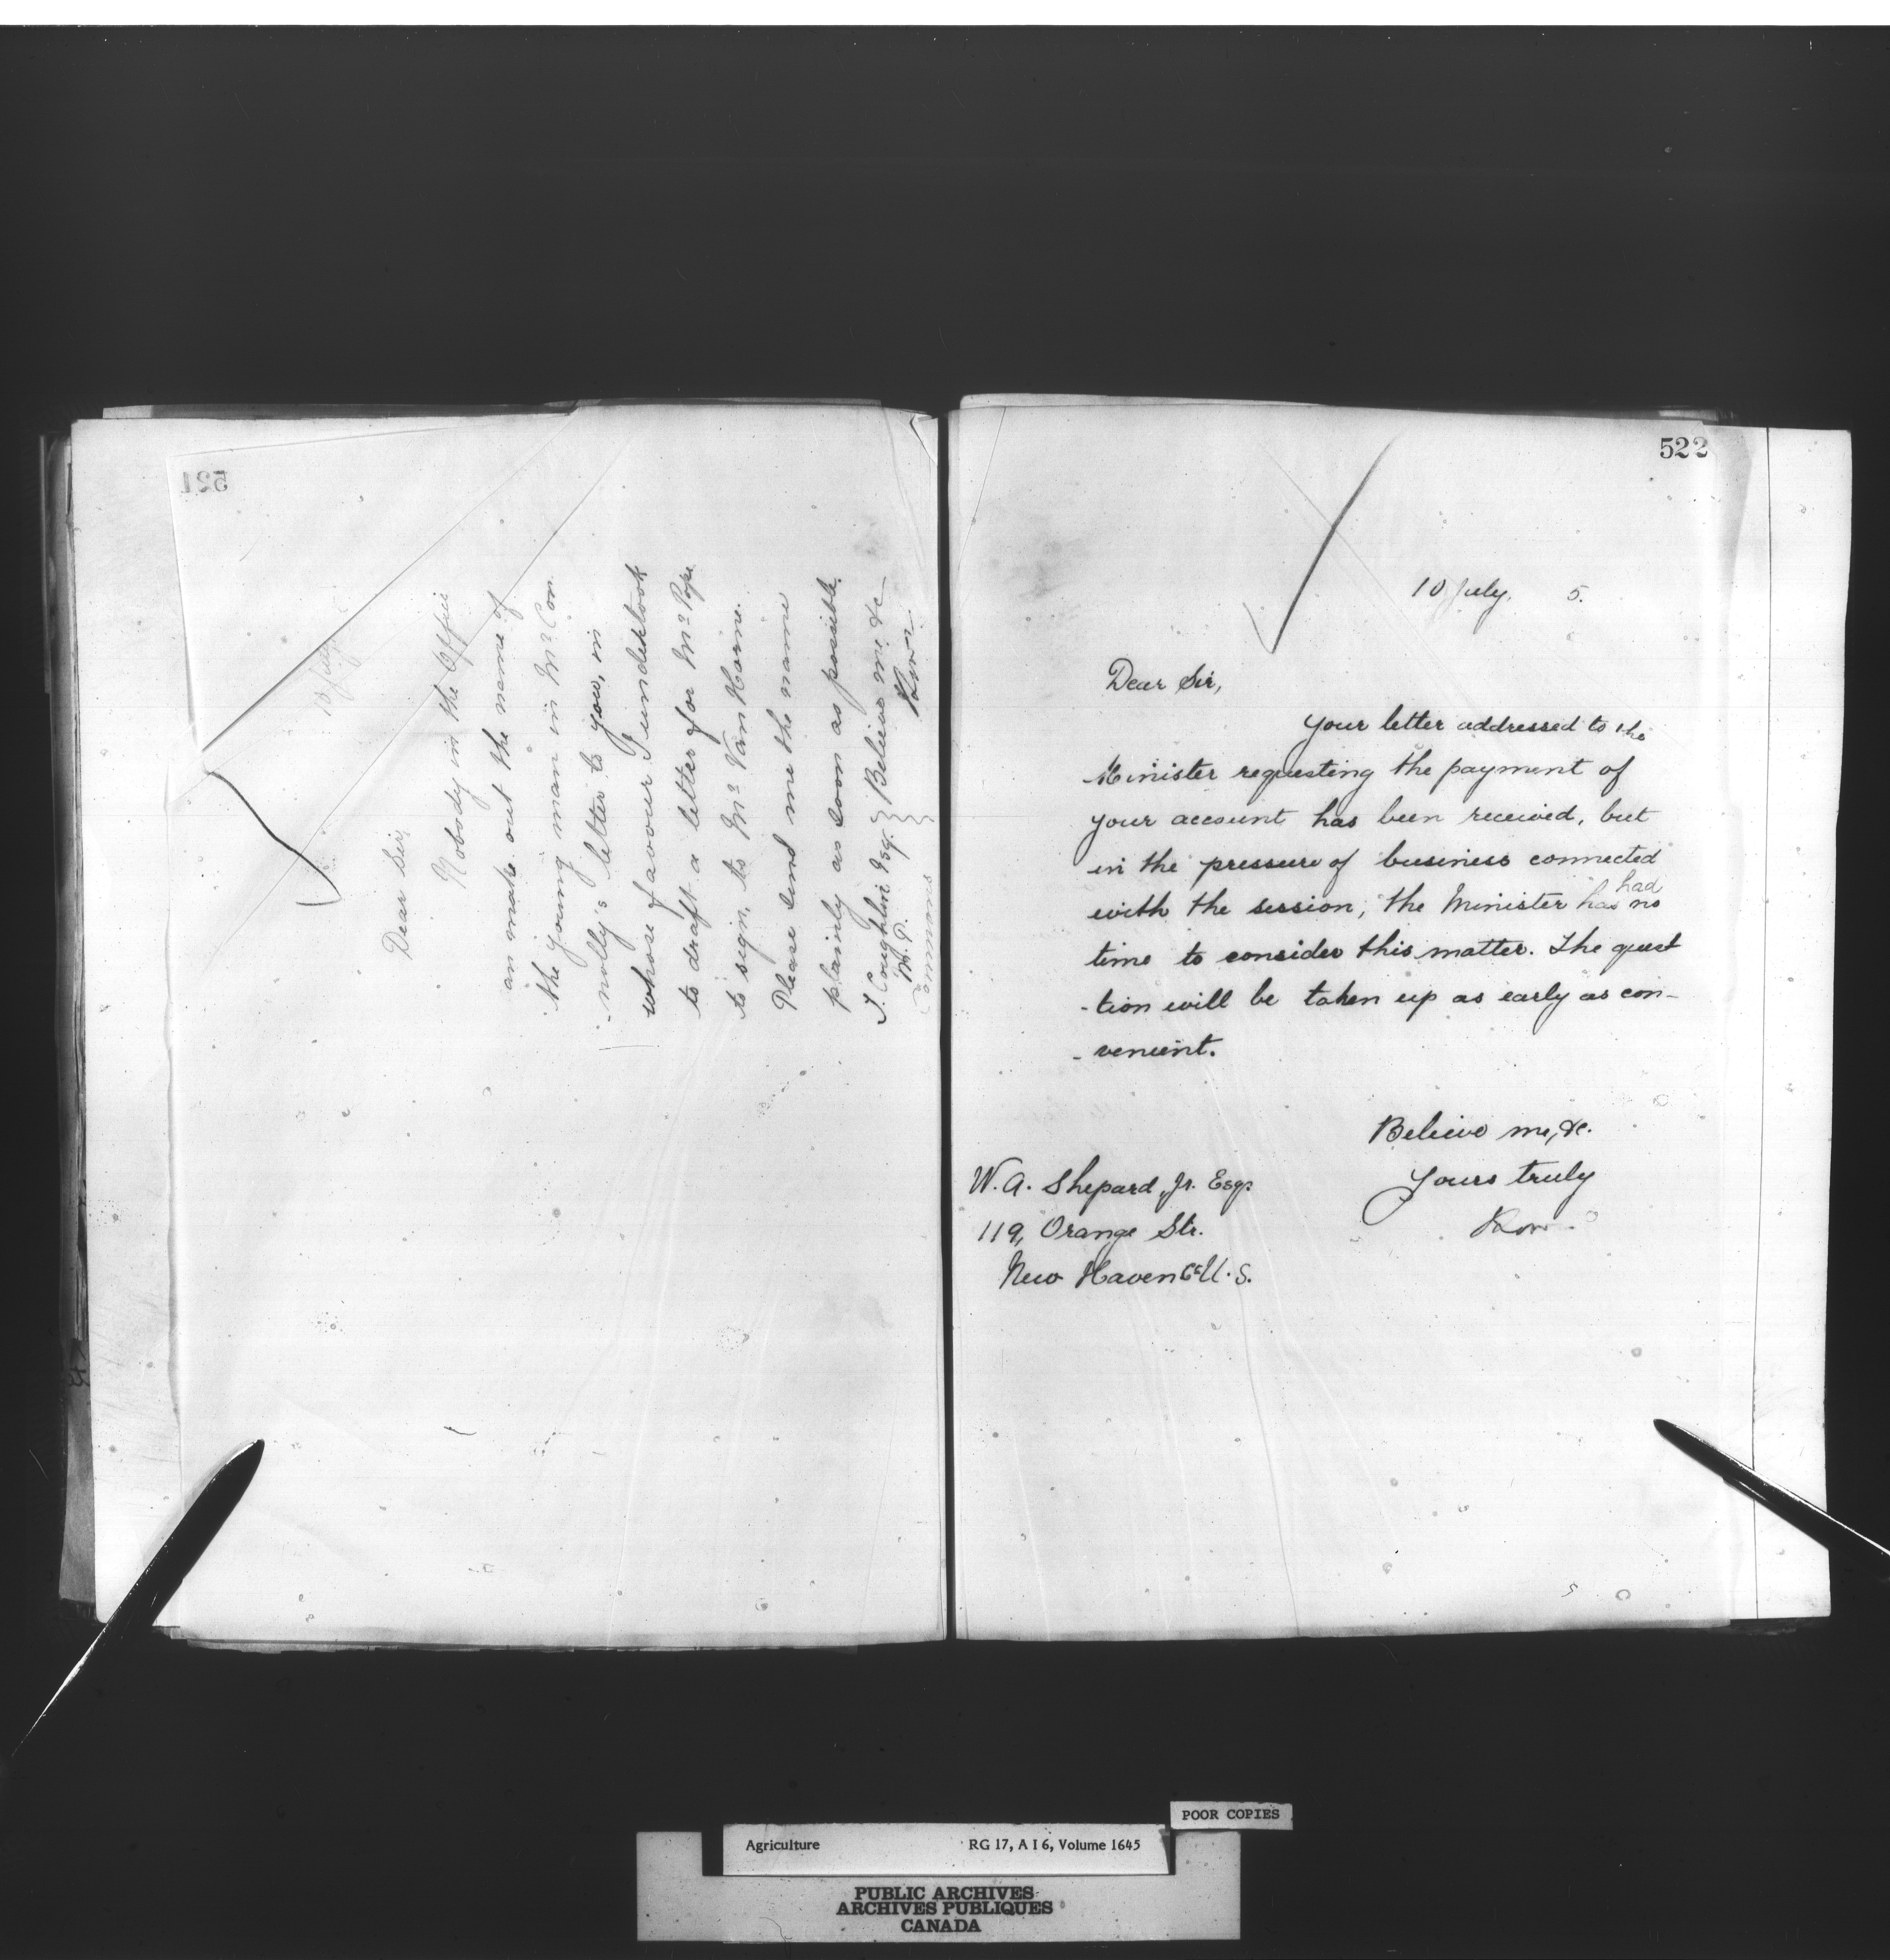 521
10 July
Dear Sir,
Nobody in the Office
an make out the name of
the young man in Mr Con
-nolly's letter to you, in
whose favour I undertook
to draft a letter for Mr Pope
to sign, to Mr Van Horne.
Please send me the name
plainly as soon as possible.
Believe me &c
T. Coughlin Esq.
M.P.
Commons
522
10 July, 5.
Dear Sir,
Your letter addressed to the
Minister requesting the payment of
your account has been received, but
in the pressure of business connected
with the session, the Minister has had no
time to consider this matter. The quest
-tion will be taken up as early as con-
-venient.
Believe me, &c.
Yours truly
W. A. Shepard, Jr. Esq.
119, Orange Str.
New Haven Ct U.S.
POOR COPIES
Agriculture RG 17, A I 6, Volume 1645
PUBLIC ARCHIVES
ARCHIVES PUBLIQUES
CANADA